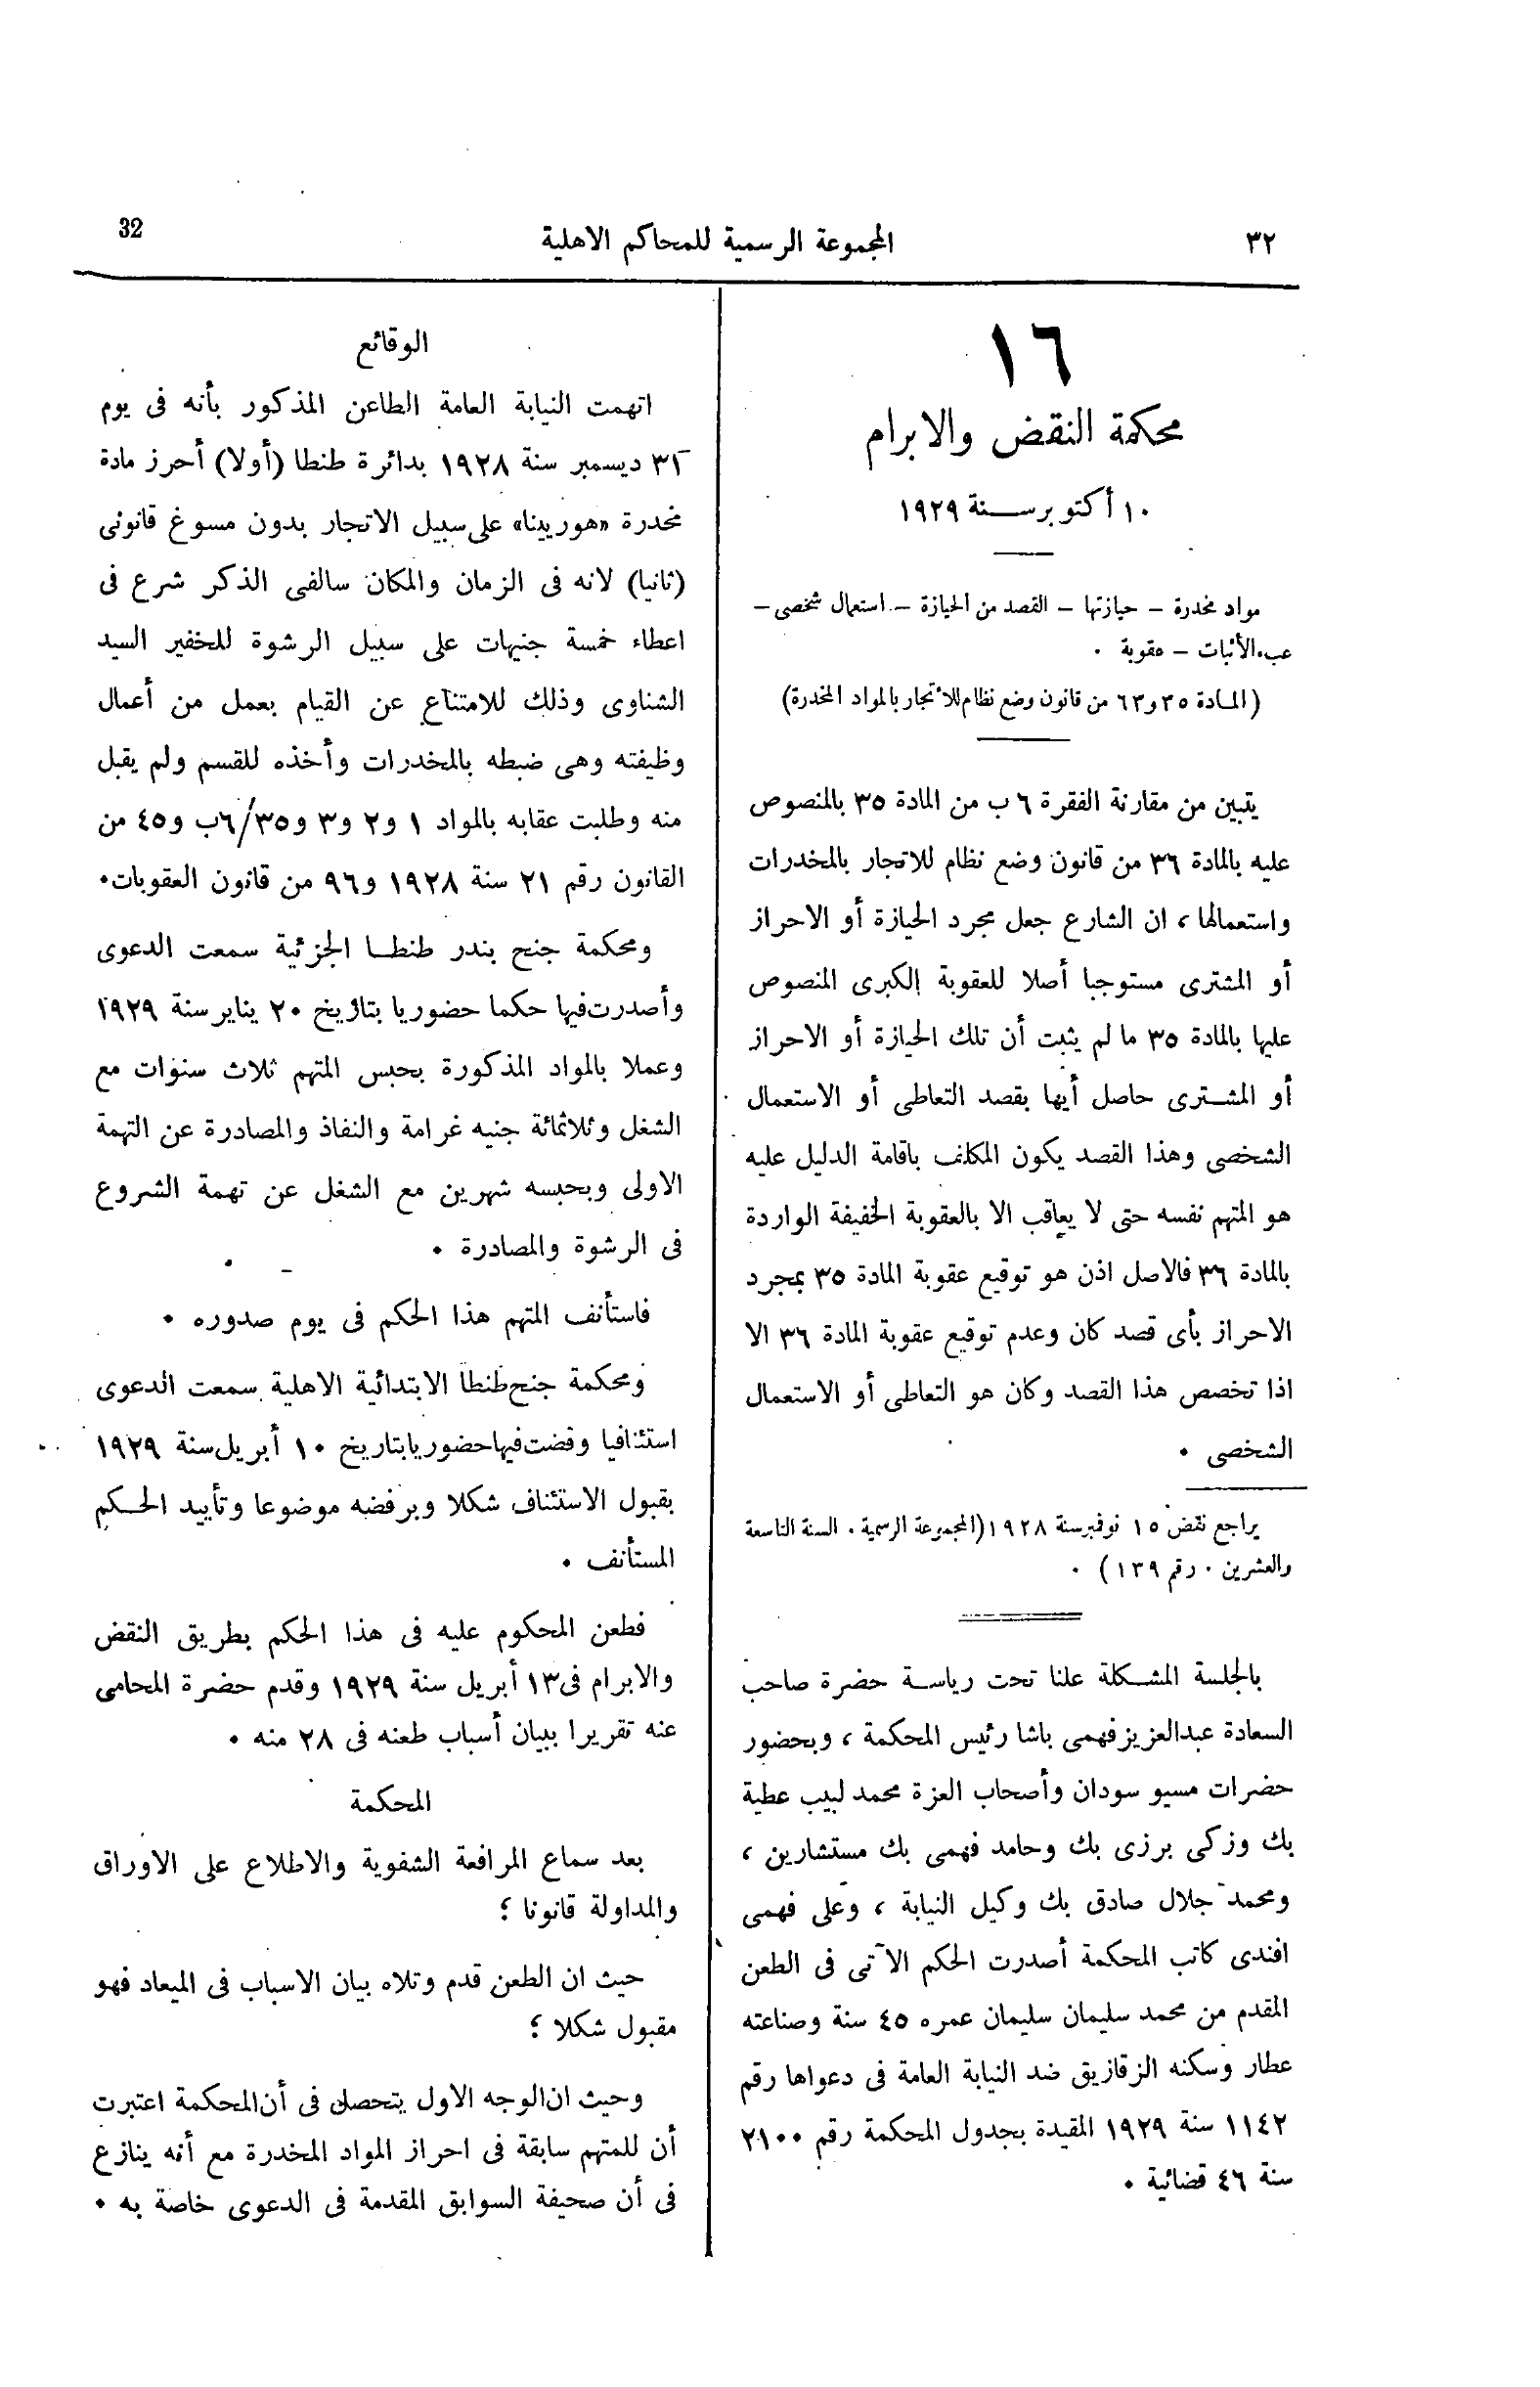 ٣٢
المجموعة الرسمية للمحاكم الاهلية
32
١٦
محكمة النقض والابرام
١٠ أكتوبر ســنة ١٩٢٩
مواد مخدرة – حيازتها – القصد من الحيازة – استعمال شخصى –
عبء الأثبات – عقوبة ٠
(المادة ٣٥ و٦٣ من قانون وضع نظام للاتجار بالمواد المخدرة)
يتبين من مقارنة الفقرة ٦ ب من المادة ٣٥ بالمنصوص
عليه بالمادة ٣٦ من قانون وضع نظام للاتجار بالمخدرات
واستعمالها ، ان الشارع جعل مجرد الحيازة أو الاحراز
أو المشترى مستوجبا أصلا للعقوبة الكبرى المنصوص
عليها بالمادة ٣٥ ما لم يثبت أن تلك الحيازة أو الاحراز
أو المشــترى حاصل أيها بقصد التعاطى أو الاستعمال
الشخصى وهذا القصد يكون المكلف باقامة الدليل عليه
هو المتهم نفسه حتى لا يعاقب الا بالعقوبة الخفيفة الواردة
بالمادة ٣٦ فالاصل اذن هو توقيع عقوبة المادة ٣٥ بمجرد
الاحراز بأى قصد كان وعدم توقيع عقوبة المادة ٣٦ الا
اذا تخصص هذا القصد وكان هو التعاطى أو الاستعمال
الشخصى ٠
يراجع نقض ١٥ نوفمبر سنة ١٩٢٨ (المجموعة الرسمية ٠ السنة التاسعة
والعشرين ٠ رقم ١٣٩) ٠
بالجلسة المشــكلة علنا تحت رياســة حضرة صاحب
السعادة عبدالعزيز فهمى باشا رئيس المحكمة ، وبحضور
حضرات مسيو سودان وأصحاب العزة محمد لبيب عطية
بك وزكى برزى بك وحامد فهمى بك مستشارين ،
ومحمد جلال صادق بك وكيل النيابة ، وعلى فهمى
افندى كاتب المحكمة أصدرت الحكم الآتى فى الطعن
المقدم من محمد سليمان سليمان عمره ٤٥ سنة وصناعته
عطار وسكنه الزقازيق ضد النيابة العامة فى دعواها رقم
١١٤٢ سنة ١٩٢٩ المقيدة بجدول المحكمة رقم ٢١٠٠
سنة ٤٦ قضائية ٠
الوقائع
اتهمت النيابة العامة الطاعن المذكور بأنه فى يوم
٣١ ديسمبر سنة ١٩٢٨ بدائرة طنطا (أولا) أحرز مادة
مخدرة «هوريينا» على سبيل الاتجار بدون مسوغ قانونى
(ثانيا) لانه فى الزمان والمكان سالفى الذكر شرع فى
اعطاء خمسة جنيهات على سبيل الرشوة للخفير السيد
الشناوى وذلك للامتناع عن القيام بعمل من أعمال
وظيفته وهى ضبطه بالمخدرات وأخذه للقسم ولم يقبل
منه وطلبت عقابه بالمواد ١ و٢ و٣ و٦/٣٥ب و٤٥ من
القانون رقم ٢١ سنة ١٩٢٨ و٩٦ من قانون العقوبات٠
ومحكمة جنح بندر طنطــا الجزئية سمعت الدعوى
وأصدرت فيها حكما حضوريا بتاريخ ٢٠ يناير سنة ١٩٢٩
وعملا بالمواد المذكورة بحبس المتهم ثلاث سنوات مع
الشغل وثلاثمائة جنيه غرامة والنفاذ والمصادرة عن التهمة
الاولى وبحبسه شهرين مع الشغل عن تهمة الشروع
فى الرشوة والمصادرة ٠
فاستأنف المتهم هذا الحكم فى يوم صدوره ٠
ومحكمة جنح طنطا الابتدائية الاهلية سمعت الدعوى
استئنافيا وقضت فيها حضوريا بتاريخ ١٠ أبريل سنة ١٩٢٩
بقبول الاستئناف شكلا وبرفضه موضوعا وتأييد الحــكم
المستأنف ٠
فطعن المحكوم عليه فى هذا الحكم بطريق النقض
والابرام فى ١٣ أبريل سنة ١٩٢٩ وقدم حضرة المحامى
عنه تقريرا ببيان أسباب طعنه فى ٢٨ منه ٠
المحكمة
بعد سماع المرافعة الشفوية والاطلاع على الاوراق
والمداولة قانونا ؛
حيث ان الطعن قدم وتلاه بيان الاسباب فى الميعاد فهو
مقبول شكلا ؛
وحيث ان الوجه الاول يتحصل فى أن المحكمة اعتبرت
أن للمتهم سابقة فى احراز المواد المخدرة مع أنه ينازع
فى أن صحيفة السوابق المقدمة فى الدعوى خاصة به ٠